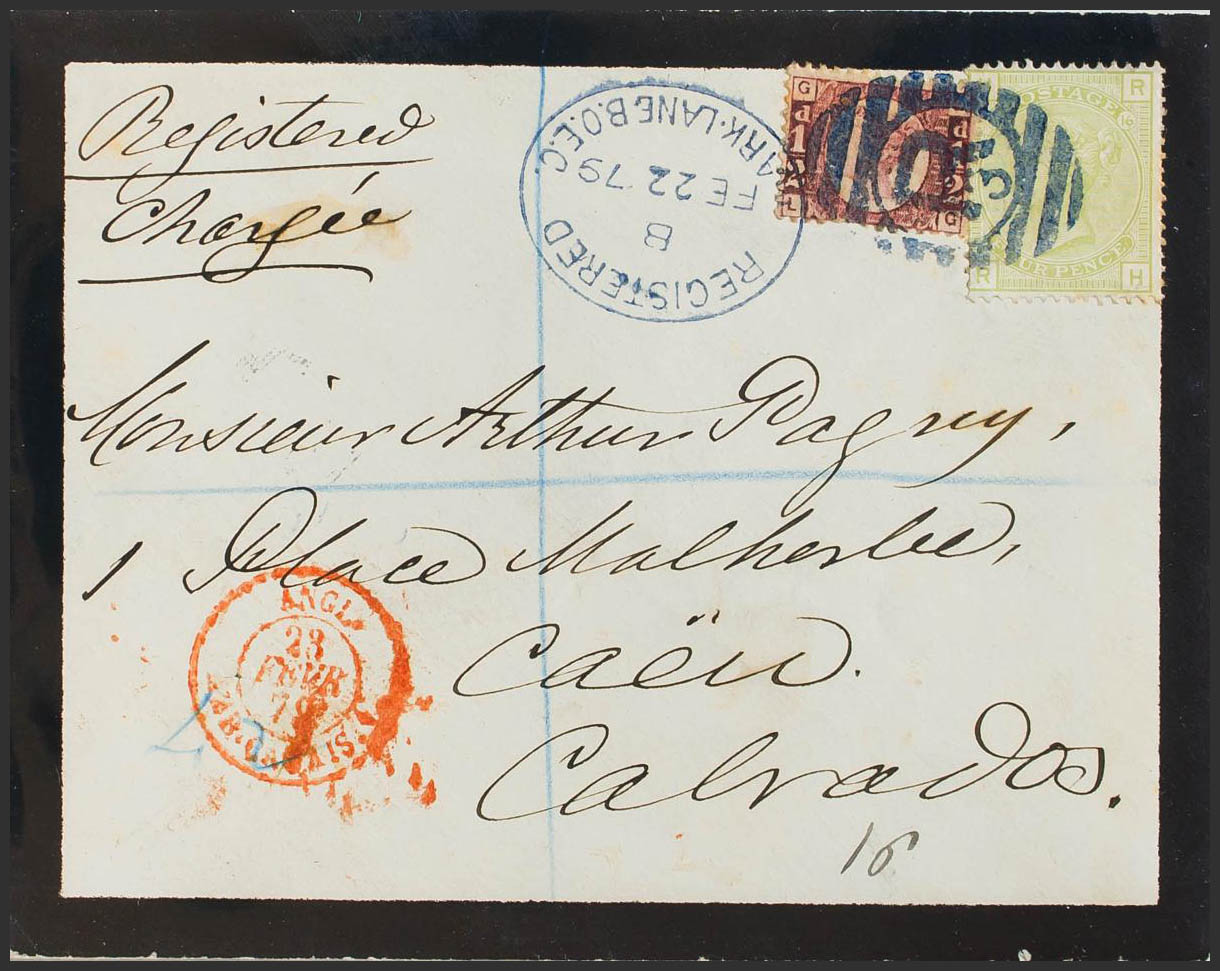 Registered
Chargée
REGISTERED
MARK·LANE B.O.E.C.
8
FE 22 79
G
d1
2
L
G
POSTAGE
R
16
FOUR PENCE
R
H
Monsieur Arthur Pagny,
1 Place Malherbe,
Caën.
Calvados.
ANGL.
23
FEVR
79
16